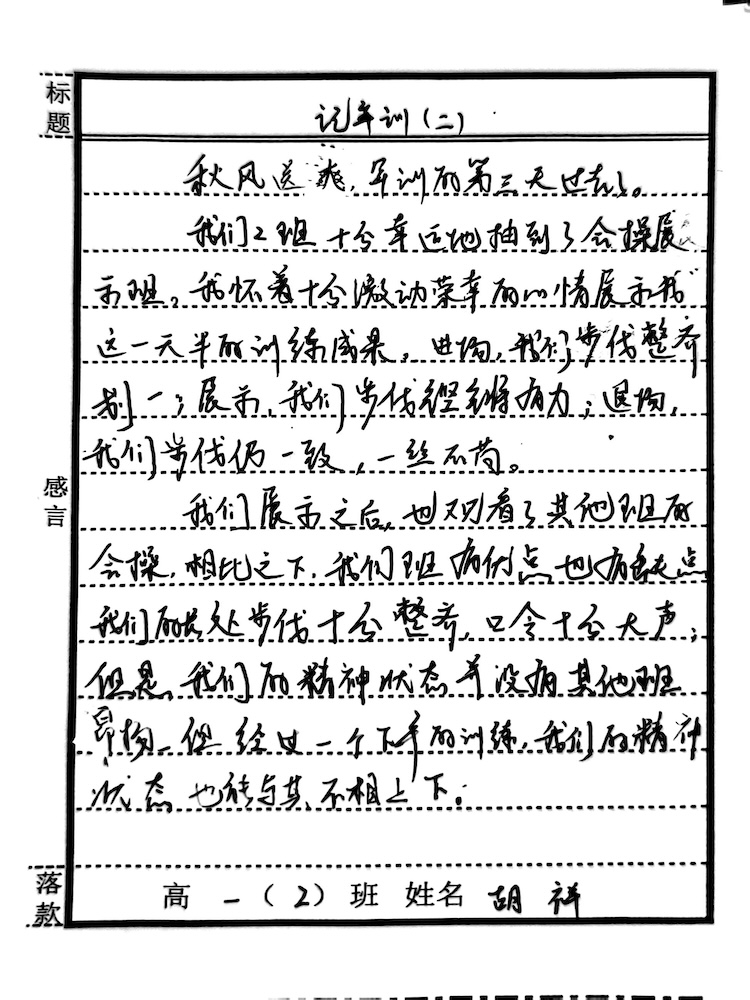 标题
记军训（二）
秋风送爽，军训的第三天过去了。
我们2班十分幸运地抽到了会操展
示班。我怀着十分激动荣幸的心情展示我
这一天半的训练成果。进场，我们步伐整齐
划一；展示，我们步伐铿锵有力；退场，
我们步伐仍一致，一丝不苟。
感言
我们展示之后，也观看了其他班的
会操，相比之下，我们班有优点也有缺点
我们的长处步伐十分整齐，口令十分大声；
但是，我们的精神状态并没有其他班
昂扬，但经过一个下午的训练，我们的精神
状态也能与其不相上下。
落款
高一（2）班 姓名 胡祥